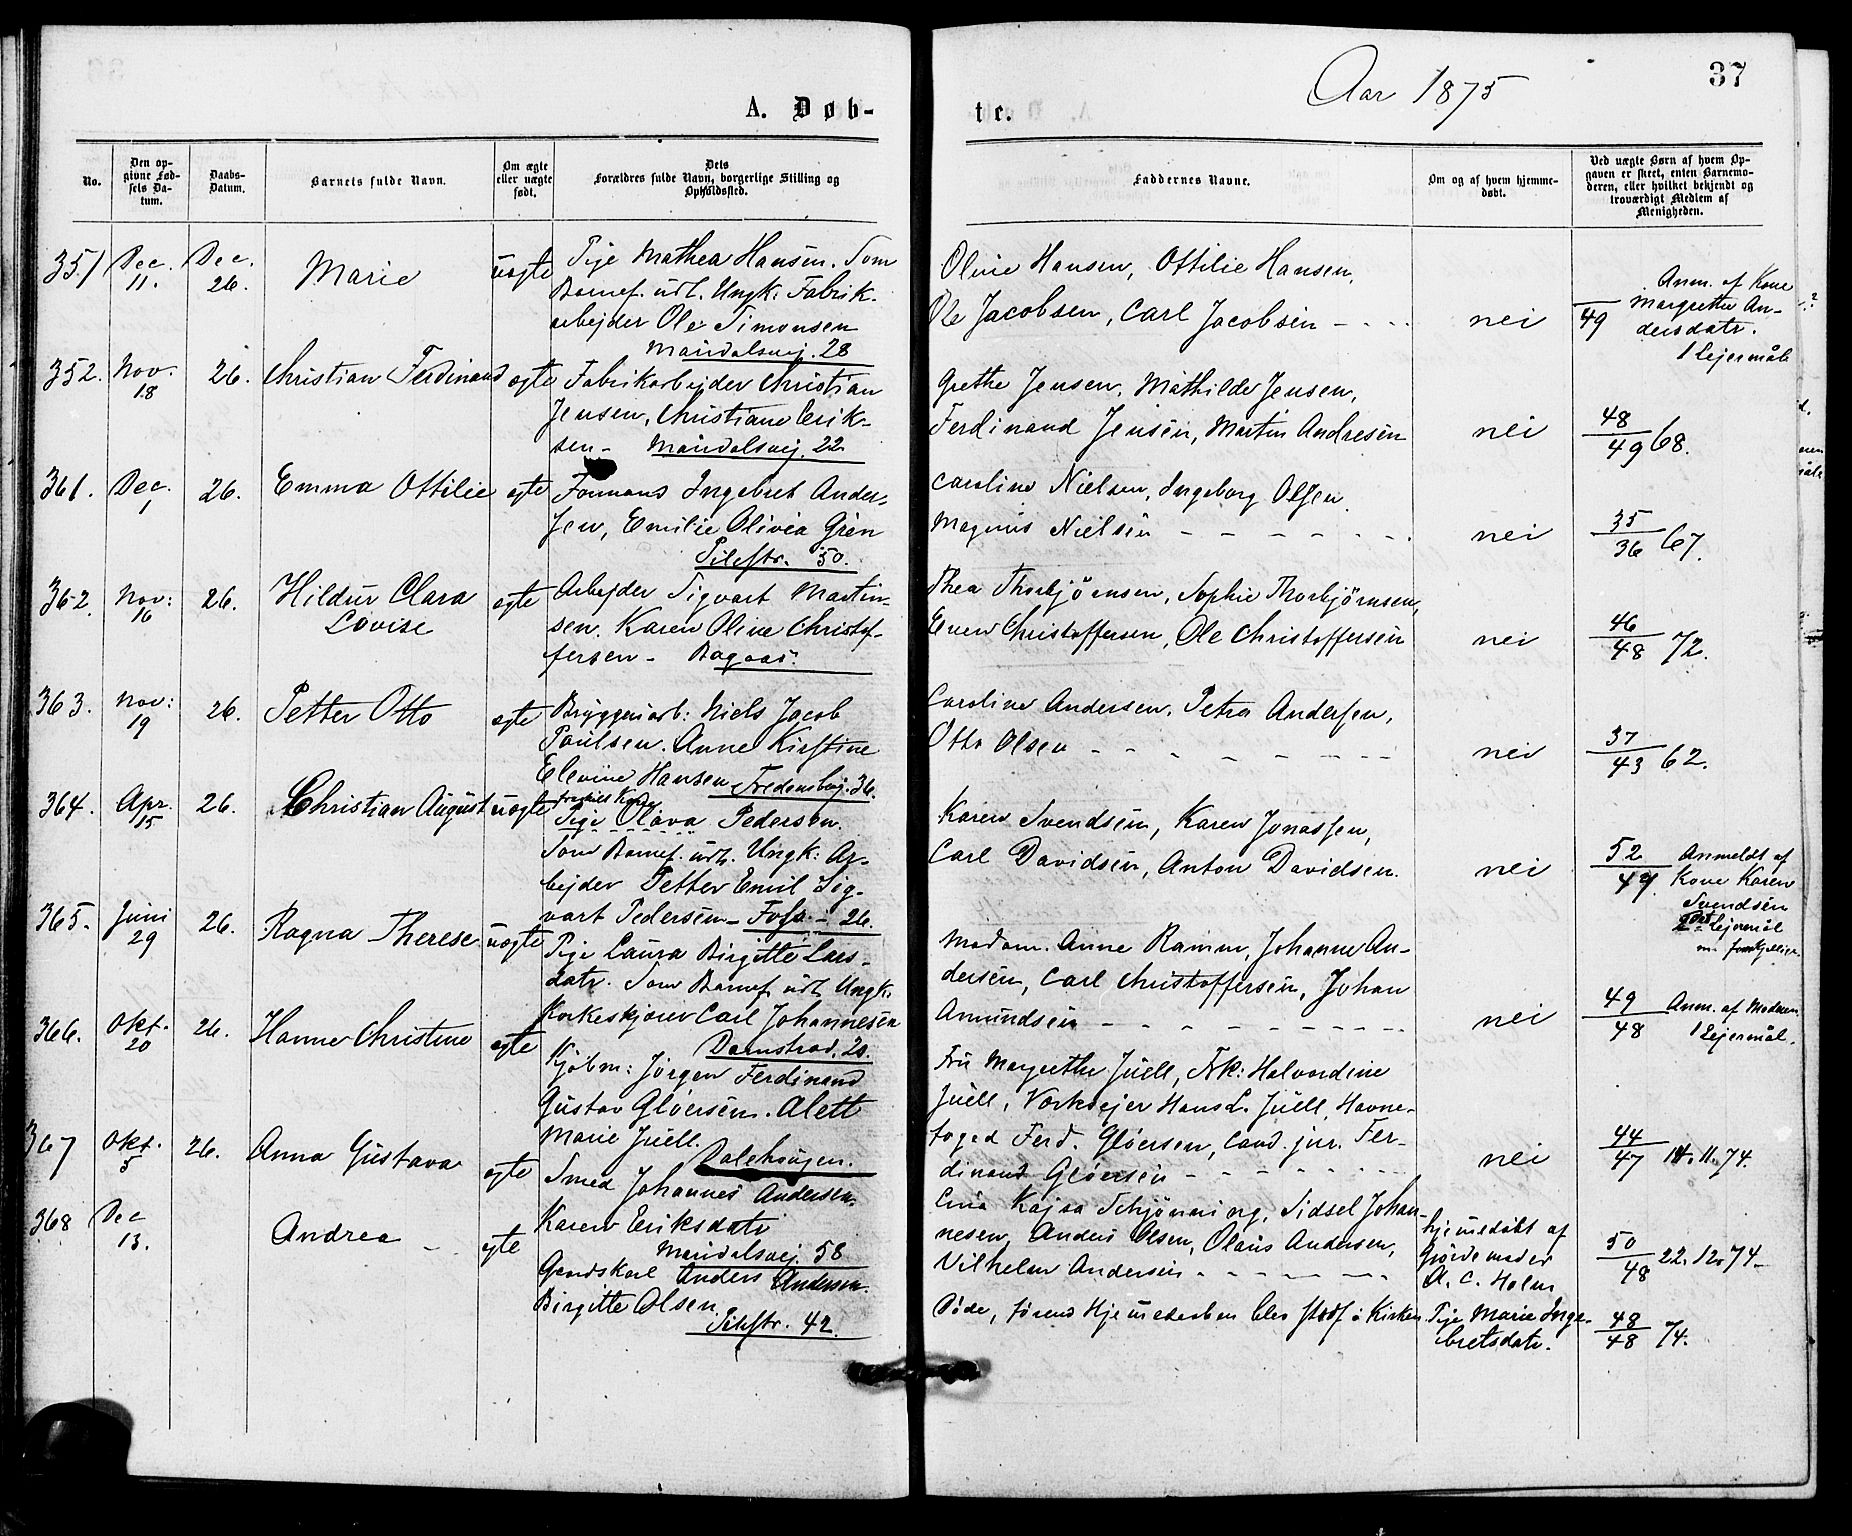 Aar 1875
37
A. Døb-
te.
No.
Den op-
givne Fød-
sels Da-
tum.
Daabs-
Datum.
Barnets fulde Navn.
Om ægte
eller uægte
født.
Dets
Forældres fulde Navn, borgerlige Stilling og
Opholdssted.
Faddernes Navne.
Om og af hvem hjemme-
døbt.
Ved uægte Børn af hvem Op-
gaven er skeet, enten Barnemo-
deren, eller hvilket bekjendt og
troværdigt Medlem af
Menigheden.
351 Dec. 11. Dec. 26. Marie uægte Pige Mathea Hansen. Som
Barnef. udl. Ungk: Fabrik-
arbejder Ole Simonsen
Maridalsvej. 28
Oline Hansen, Ottilie Hansen,
Ole Jacobsen, Carl Jacobsen - - - nei 49 Anm. af Kone
Margrethe An-
dersdatr.
1 Lejermål
352. Nov. 18 26. Christian Ferdinand ægte Fabrikarbejder Christian
Jensen, Christiane Erik-
sen - Maridalsvej. 22
Grethe Jensen, Mathilde Jensen,
Ferdinand Jensen, Martin Andresen nei 48/49 68.
361. Dec. 1 26. Emma Ottilie ægte Formans Ingebret Ander-
sen, Emilie Olivia Grén
Pilestr. 50.
Caroline Nielsen, Ingeborg Olsen
Magnus Nielsen - - - - - - nei 35/36 67.
362. Nov: 16 26. Hildur Clara
Lovise ægte Arbejder Sigvart Martin-
sen. Karen Oline Christof-
fersen - Bagaas.
Thea Thorbjørnsen, Sophie Thorbjørnsen,
Even Christoffersen, Ole Christoffersen nei 46/48 72.
363. Nov: 19 26. Petter Otto ægte Bryggeriarb: Niels Jacob
Paulsen. Anne Kirstine
Elevine Hansen Fredensbvj. 36.
Caroline Andersen, Petra Andersen,
Otto Olsen - - - - - - - nei 37/43 62.
364. Apr. 15 26. Christian August uægte
Pige Olava Pedersen.
Som Barnef. udl. Ungk: Ar-
bejder Petter Emil Sig-
vart Pedersen - Fossv. - 26.
Karen Svendsen, Karen Jonassen,
Carl Davidsen, Anton Davidsen. nei 52/49. Anmeldt af
Kone Karen
Svendsen
Lejermål
365. Juni 29 26. Ragna Therese uægte Pige Laura Birgitte Lars-
datr. Som Barnef. udl. Ungk.
Korkeskjærer Carl Johannesen
Damstræd. 20.
Madam. Anne Ramm, Johanne An-
dersen, Carl Christoffersen, Johan
Amundsen - - - - - - - - nei 49/48 Anm. af Moderen
1 Lejermål.
366. Okt. 20 26. Hanne Christine ægte Kjøbm: Jörgen Ferdinand
Gustav Gløersen. Alett
Marie Juell.
Dalehaugen.
Fru Margrethe Juell, Frk: Halvordine
Juell, Værksejer Hans L. Juell, Havne-
foged Ferd. Gløersen, Cand. jur. Fer-
dinand Gløersen - - - - - - nei 44/47 14. 11. 74.
367 Okt. 5 26. Anna Gustava ægte Smed Johannes Andersen.
Karen Eriksdatr
Maridalsvej. 58
Kajsa Schjønning, Sidsel Johan-
nesen, Anders Olsen, Olaus Andersen,
Vilhelm Andersen - - - - - - hjemedøbt af
Gjordemoder
A. C. Holm 50/48 22. 12. 74
368 Dec 13. Andrea - ægte Gaardskarl Anders Andersen.
Birgitte Olsen
Pilestr. 42.
Døde, førend Hjemedaaben blev stadf. i Kirken. Pige Marie Inge-
bretsdatr. 48/48 74.